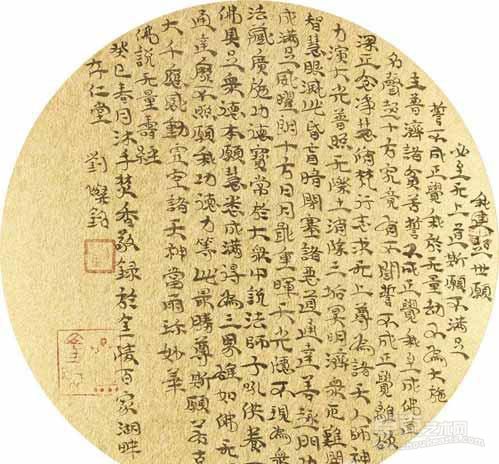 我建超世願
必至无上道斯願不滿足
誓不成正覺我於无量劫不為大施
主普濟諸貧苦誓不成正覺我至成佛
名聲超十方究竟有不聞誓不成正覺離欲
深正念淨慧脩梵行志求无上尊為諸天人師神
力演大光普照无際土消除三垢冥明濟衆厄難開
智慧眼滅此昏盲暗閉塞諸惡道通達善趣門功
成滿足威曜朗十方日月戢重暉天光隱不現為衆
法藏廣施功德寶常於大衆中說法師子吼供養一
佛具足衆德本願慧悉成滿得為三界雄如佛无
通達靡不照願我功德力等此最勝尊斯願若克
大千應感動虛空諸天神當雨珍妙華
佛說无量壽經
癸巳春月沐手焚香敬録於金陵百家湖畔
存仁堂 劉燦銘
艺术网